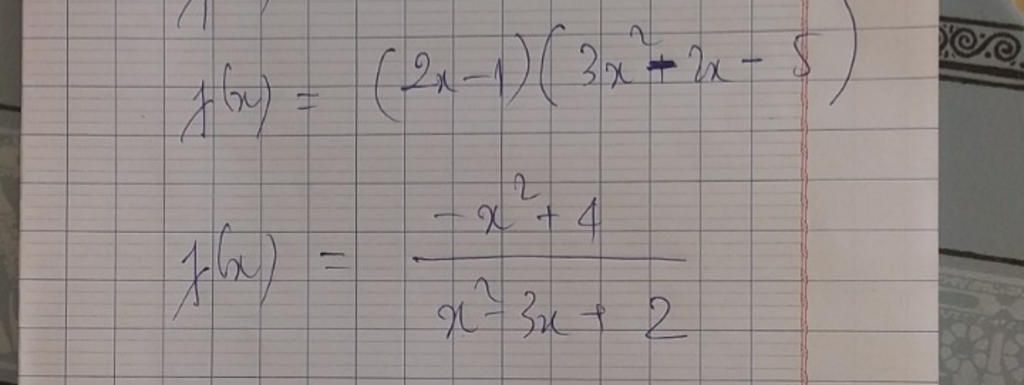 f(x) = (2x-1)(3x²-2x-5)
f(x) = \frac{-x²+4}{x²-3x+2}